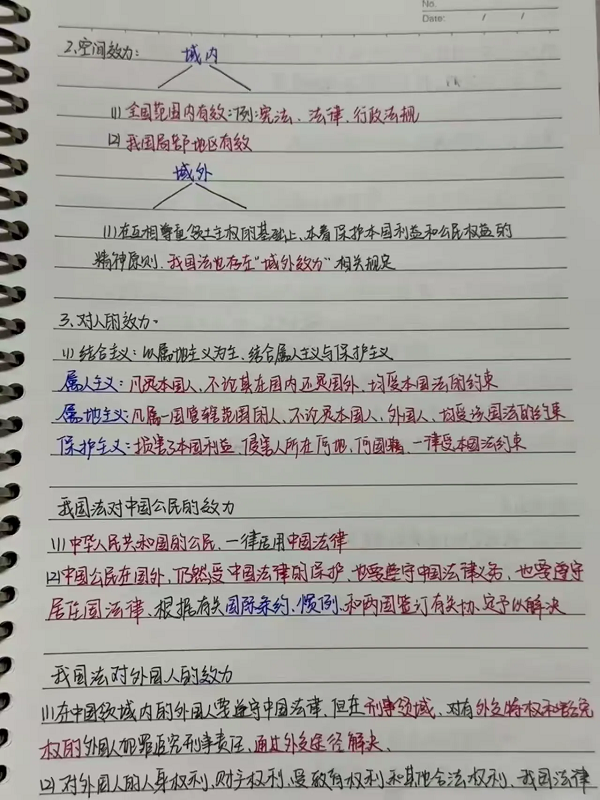 No.
Date: / /
2、空间效力: 域内
(1) 全国范围内有效:例:宪法、法律、行政法规
(2) 我国局部地区有效
域外
(1)在互相尊重领土主权的基础上、本着保护本国利益和公民权益的
精神原则、我国法也存在"域外效力"相关规定
3、对人的效力.
(1) 结合主义:以属地主义为主、结合属人主义与保护主义
属人主义:凡是本国人、不论其在国内还是国外、均受本国法的约束
属地主义:凡属一国管辖范围内人、不论是本国人、外国人、均受该国法的约束
保护主义:损害了本国利益、侵害人所在何地、何国籍、一律受本国法约束
我国法对中国公民的效力
(1)中华人民共和国的公民、一律适用中国法律
(2)中国公民在国外、仍然受中国法律的保护、也要遵守中国法律义务、也要遵守
居住国法律、根据有关国际条约、惯例、和两国签订有关协、定予以解决
我国法对外国人的效力
(1)在中国领域内的外国人要遵守中国法律、但在刑事领域、对有外交特权和豁免
权的外国人犯罪追究刑事责任、通过外交途径解决、
(2) 对外国人的人身权利、财产权利、受教育权利和其他合法权利、我国法律